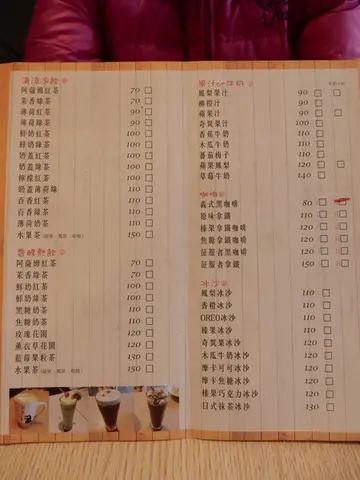 清涼冷飲
阿薩姆紅茶 70
茉香綠茶 70
薄荷紅茶 90
薄荷綠茶 90
鮮奶紅茶 100
鮮奶綠茶 100
奶蓋紅茶 100
奶蓋綠茶 100
檸檬紅茶 100
奶蓋薄荷綠 110
百香紅茶 110
百香綠茶 110
薄荷奶茶 110
水果茶 150
香醇熱飲
阿薩姆紅茶 70
茉香綠茶 70
鮮奶紅茶 100
鮮奶綠茶 100
黑糖奶茶 110
焦糖奶茶 110
玫瑰花園 120
薰衣草花園 120
藍莓果粒茶 130
水果茶 150
果汁or牛奶
鳳梨果汁 90
柳橙汁 90
蘋果汁 90
奇異果汁 100
香蕉牛奶 110
木瓜牛奶 110
蕃茄梅子 110
蘋果鳳梨 120
草莓牛奶 140
咖啡
義式黑咖啡 80
原味拿鐵 110
榛果拿鐵咖啡 120
焦糖拿鐵咖啡 120
征服者黑咖啡 120
征服者拿鐵 150
冰沙
鳳梨冰沙 110
香橙冰沙 110
OREO冰沙 110
榛果冰沙 110
奇異果冰沙 120
木瓜牛奶冰沙 120
摩卡可可冰沙 120
摩卡焦糖冰沙 120
榛果巧克力冰沙 120
日式抹茶冰沙 130